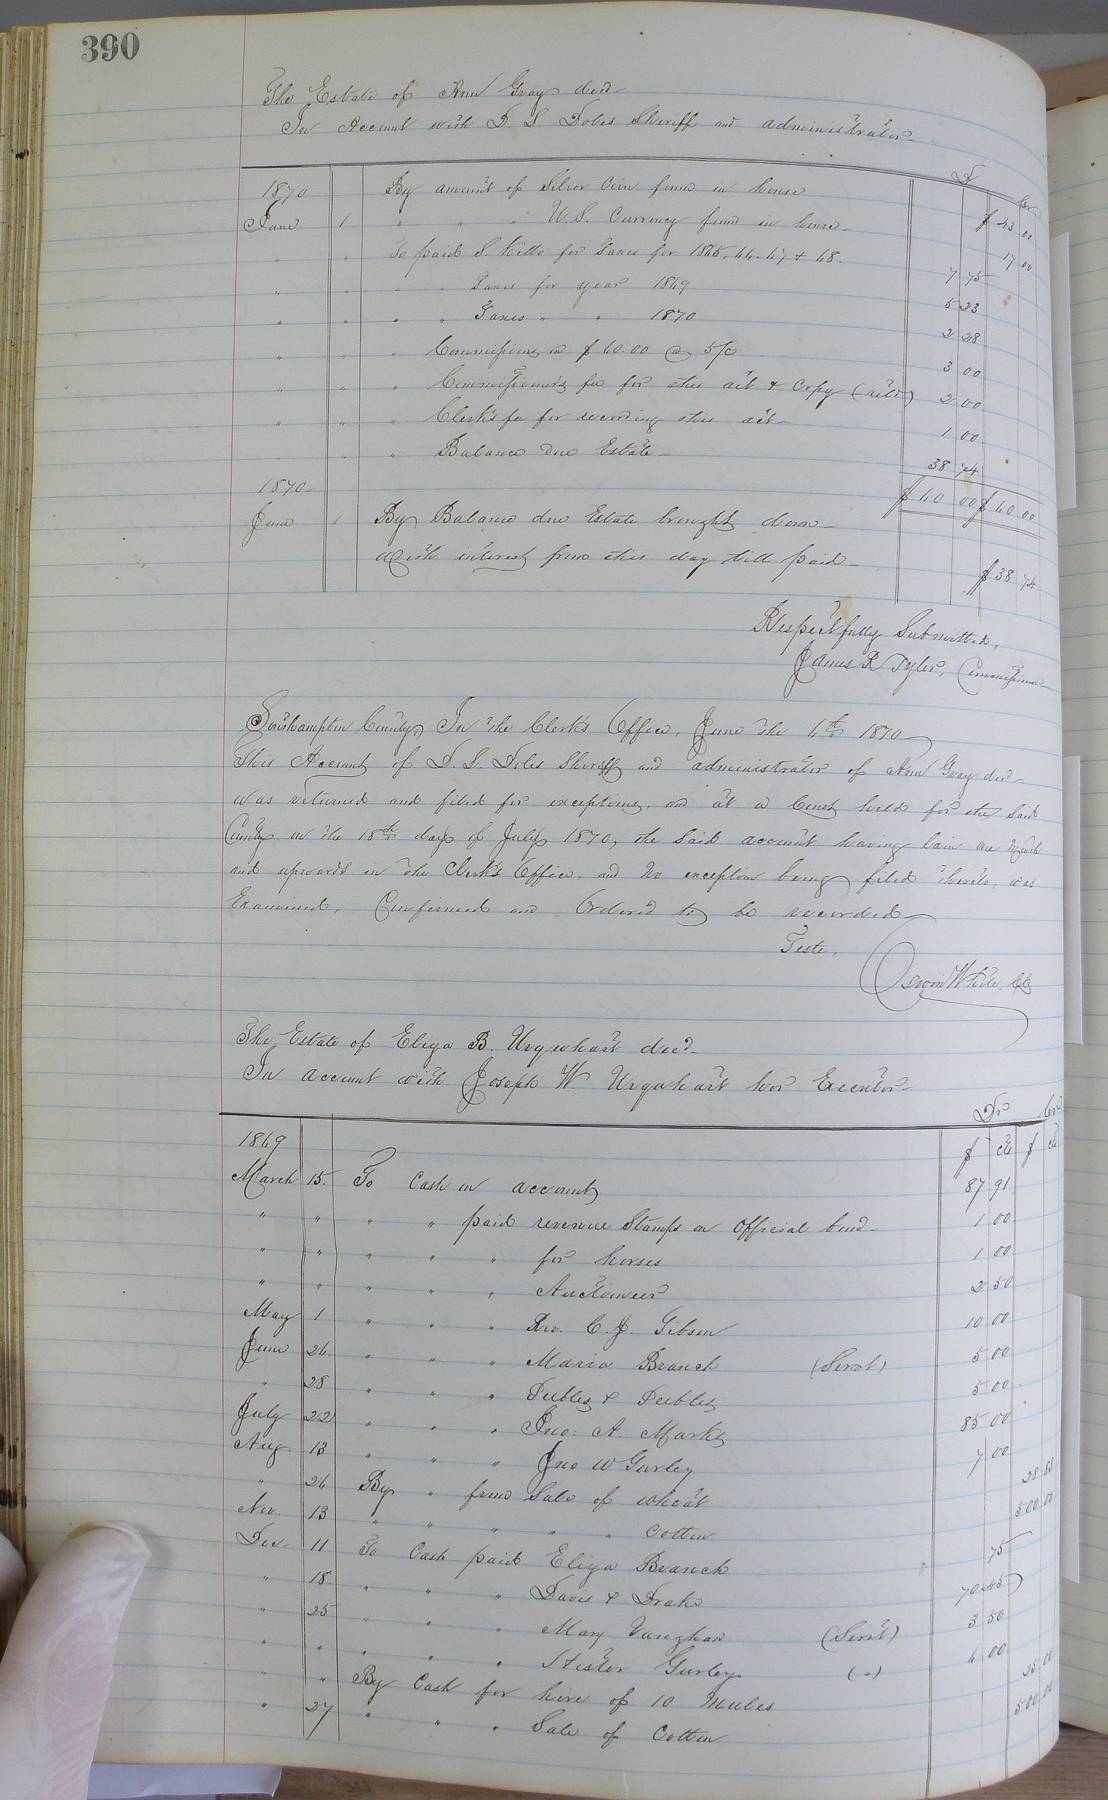 390
The Estate of Ann Gray decd
In Account with D. S. Doles Sheriff and administrator
$ Cr
1870 By amount of Silver Coin found in house $ 43 00
June 1 " " " U.S. Currency found in house 17 00
" " To paid S. Kello for Taxes for 1865, 66. 67 & 68. 7 75
" " " " Taxes for year 1869 5 23
" " " " Taxes " " 1870 2 28
" " " Commissions on $60.00 @ 5/c 3 00
" " " Commissioner's fee for this act & Copy 2 00
" " " Clerk's fee for recording this act 1 00
" " Balance due Estate 38 74
$60 00 $60 00
1870
June 1 By Balance due Estate brought down
with interest from this day till paid $38 74
Respectfully Submitted,
James R Tyler, Commissioner
Southampton County, In the Clerk's Office, June the 6th 1870
This Account of D. S. Doles Sheriff and administrator of Ann Gray decd
was returned and filed for exceptions, and at a Court held for the said
County on the 18th day of July 1870, the said account having lain one month
and upwards in the Clerk's Office, and no exception being filed thereto, was
Examined, Confirmed and Ordered to be recorded
Teste,
White, CC
The Estate of Eliza B. Urquhart decd
In account with Joseph W Urquhart her Executor
Dr Cr
1869 $ cts $ cts
March 15. To Cash on account 87 91
" " " " paid revenue Stamps on Official bond 1 00
" " " " " for horses 1 00
" " " " " Auctioneer 2 50
May 1 " " " Rev. C. J. Gibson 10 00
June 26. " " " Maria Branch (Servt) 5 00
" 28 " " " Peebles & Peebles 5 00
July 22 " " " Jno: A. Marks 85 00
Aug. 13 " " " Jno W Gurley 7 00
" 26 By " from Sale of wheat
Nov. 13 " " " " " Cotton 500 00
Dec. 11 To Cash paid Eliza Branch 75
" 18. " " " Davis & Drake 70 45
" 25 " " " Mary Vaughan (Servt) 3 50
" " " " " Hester Gurley (") 6 00
" " By Cash for hire of 10 Mules 25 00
" 27 " " " Sale of Cotton 500 00